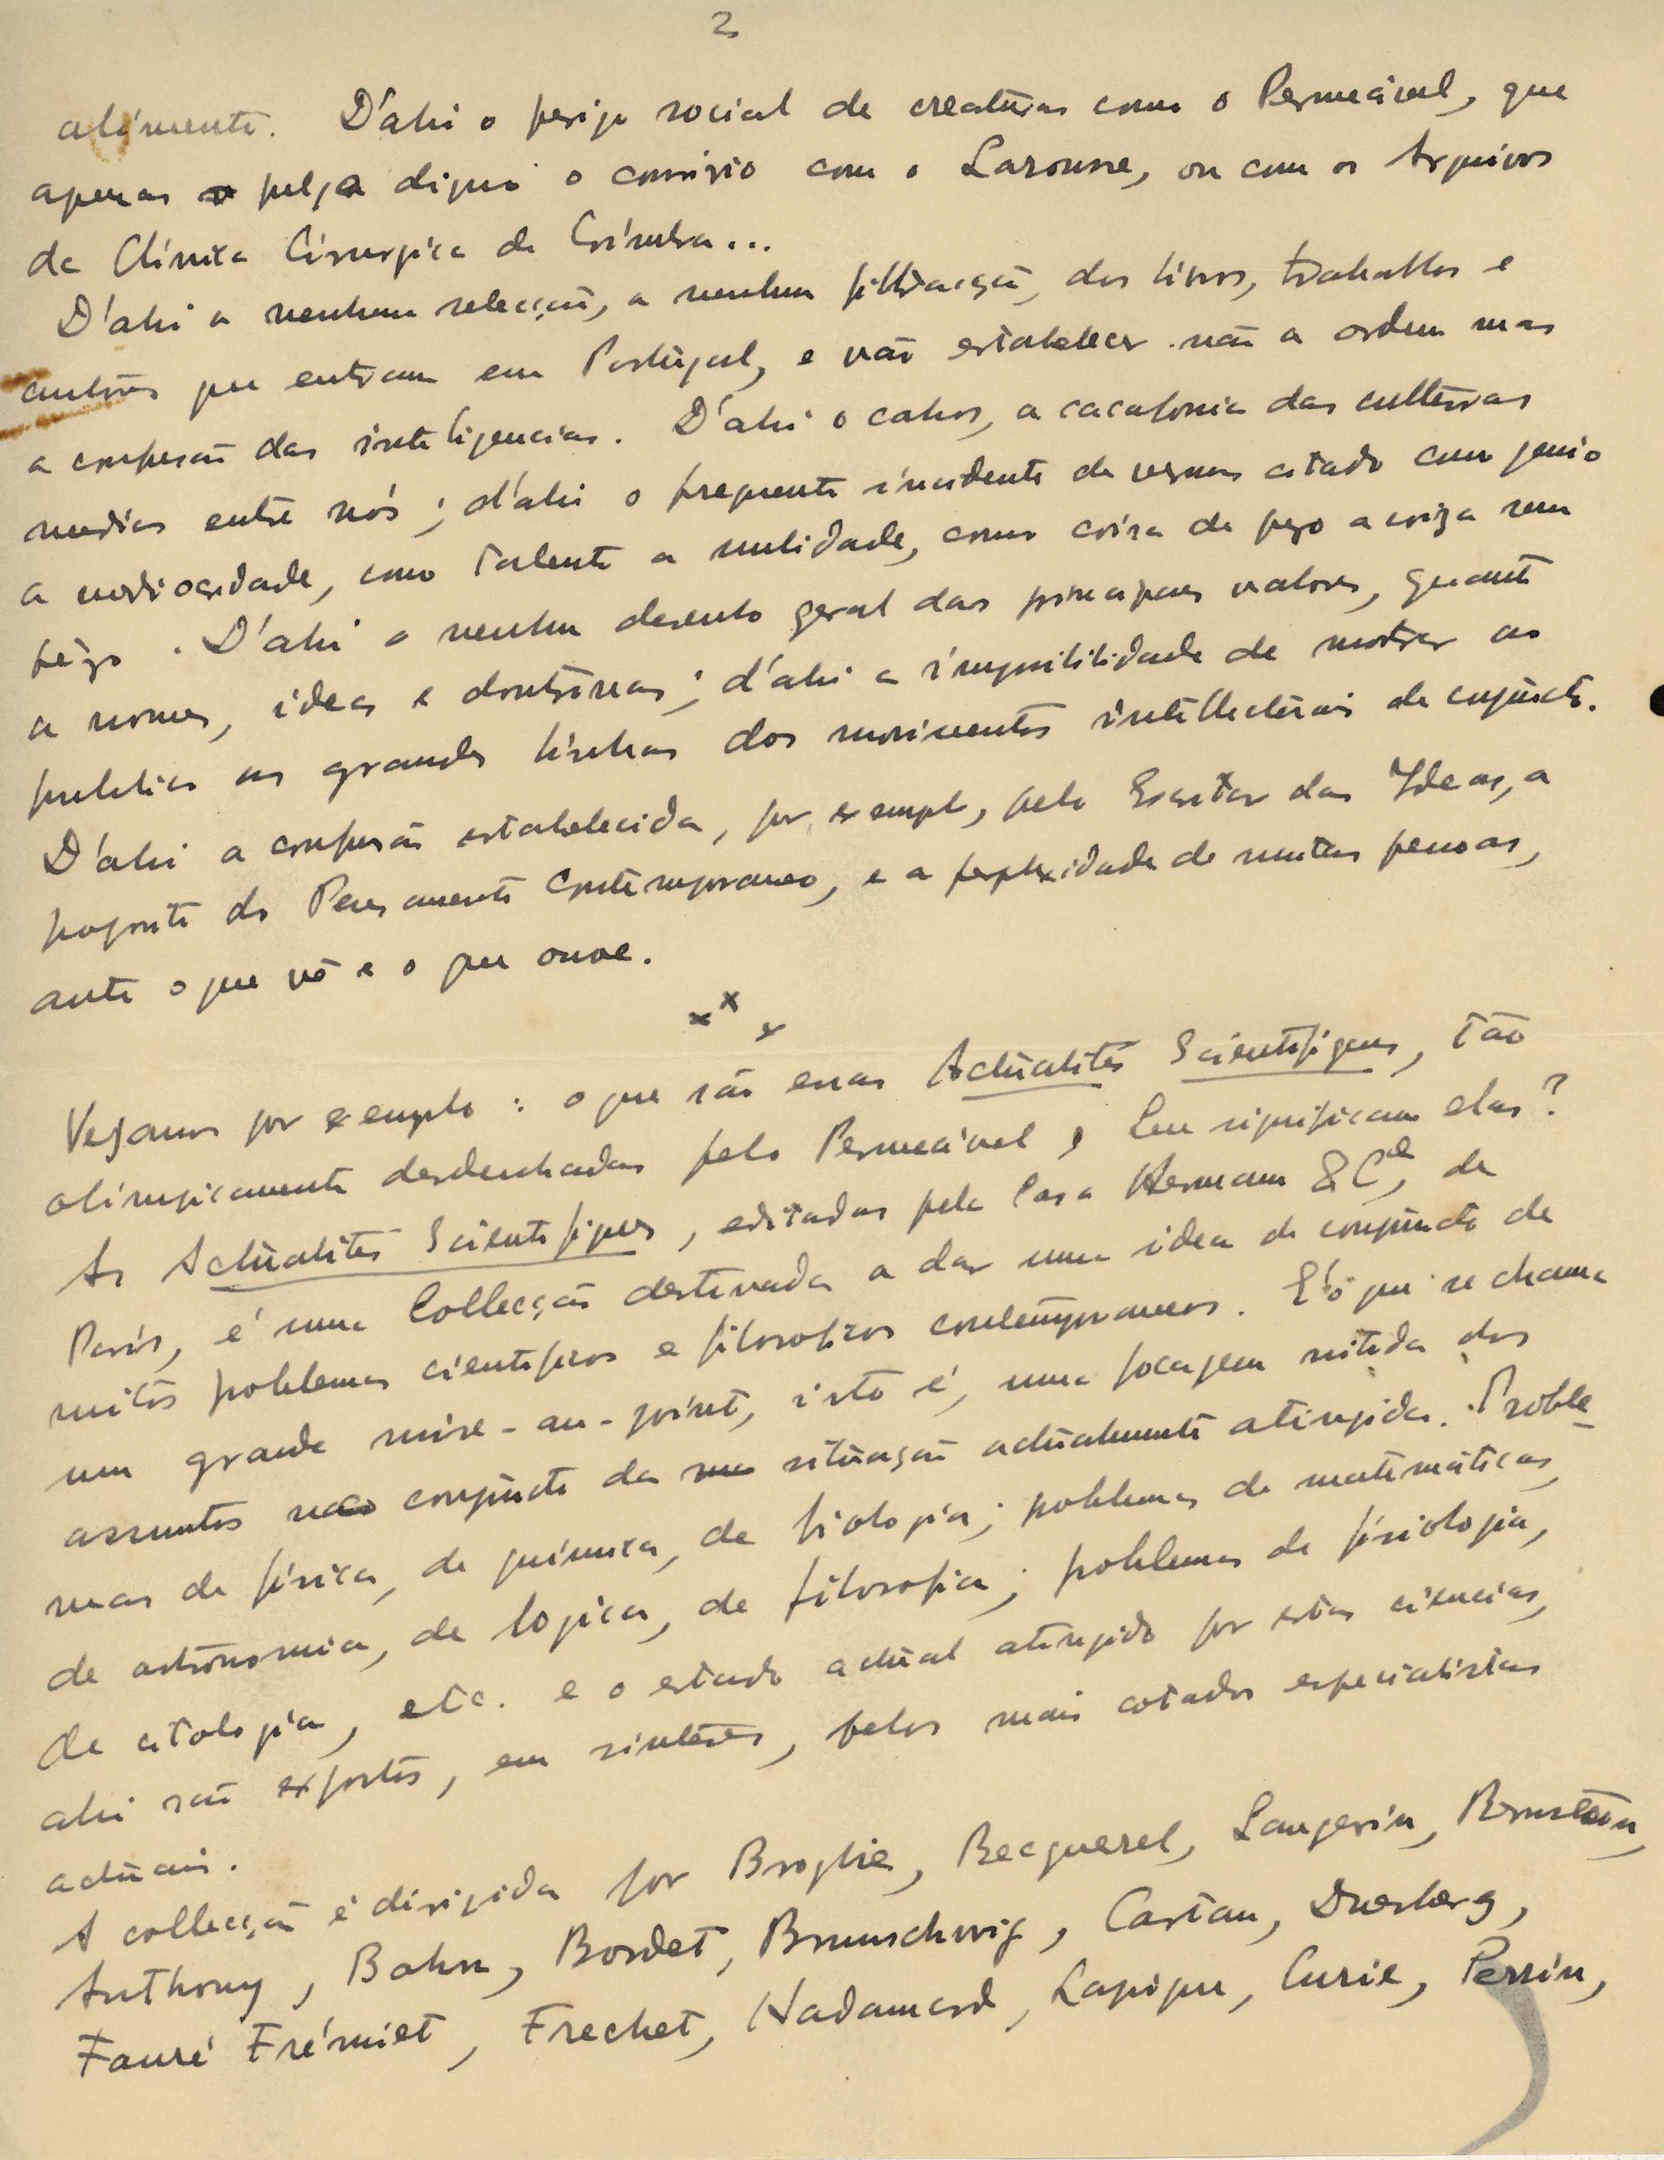 2
alimento. D'ahi o perigo social de creaturas como o Permeável, que
apenas julga digno o convívio com o Larousse, ou com os Arquivos
da Clínica Cirurgica de Coímbra...
D'ahi a nenhuma selecção, a nenhuma filtração, dos livros, trabalhos e
autôres que entram em Portugal, e vão estabelecer não a ordem mas
a confusão das inteligencias. D'ahi o cahos, a cacafonia das cultúras
medias entre nós; d'ahi o frequente incidente de vermos citado como genio
a mediocridade, como talento a nulidade, como coisa de pezo a coiza sem
pêzo. D'ahi o nenhum desenho geral das principaes valores, quanto
a nomes, ideas e doutrinas; d'ahi a impossibilidade de mostrar ao
publico as grandes linhas dos movimentos intellectuais de conjuncto.
D'ahi a confusão estabelecida, por exemplo, pelo Escritor das Ideas, a
proposito do Pensamento Contemporaneo, e a perplexidade de muitas pessoas,
ante o que vê e o que ouve.
x x x
Vejamos por exemplo: o que são essas Actualités Scientifiques, tão
olimpicamente desdenhadas pelo Permeável, Que significam elas?
As Actualités Scientifiques, editadas pela Casa Hermann & Cie, de
París, é uma Collecção destinada a dar uma idea de conjuncto de
muitos problemas cientificos e filosoficos contemporaneos. E' o que se chama
um grande mise-au-point, isto é, uma focagem nitida dos
assuntos no conjuncto da situação actualmente atingida. Proble-
mas de física, de química, de biologia; problemas de matemáticas,
de astronomia, de logica, de filosofia; problemas de fisiologia,
de citologia, etc. e o estado actual atingido por estas ciencias,
ahi são expostos, em sinteses, pelos mais cotados especialistas
actuais.
A collecção é dirigida por Broglie, Becquerel, Langevin, Bernstein,
Anthony, Bohn, Bordet, Brunschwig, Cartan, Duesberg,
Fauré Frémiet, Frechet, Hadamard, Lapique, Curie, Perrin,